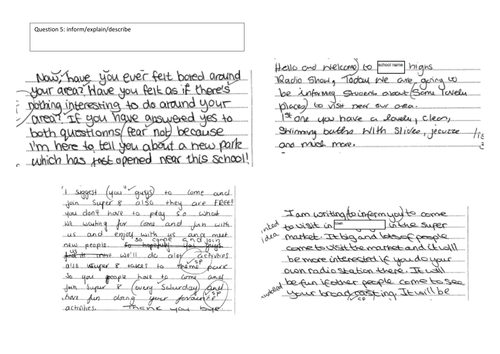 Question 5: inform/explain/describe
Now, have you ever felt bored around
your area? Have you felt as if there's
nothing interesting to do around your
area? If you have answered yes to
both questionns fear not because
I'm here to tell you about a new park
which has just opened near this school!
Hello and Welcome to school name highs
Radio Show, Today We are, going to
be informing Students about Some lovely
places to visit near our area.
1st one you have a lovely, clean,
Swimming baths With Slides, jacuzze
and much more.
"I suggest (you" guys) to come and
join Super 8 also they are FREE!
you don't have to pay so what
we waiting for come and join with
us and enjoy with us and meet
new people. so come and join
us we'll do alot activities
sp
also super 8 takes to theme park
So you people have to come and
join Super 8 every Saturday and
sp
have fun doing your favourite
activities. Thank you bye.
I am writing to inform you to come
to visit in in the super
market. It big and lots of people
come to visit the market and it will
be more interested if you do your
own radio station there. It will
be fun if other people come to see
your broadcasting. It will be
idea